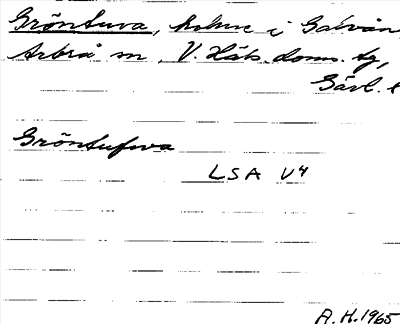 Gröntuva, holme i Galvån
Arbrå sn, V. Häls. doms. tg,
Gävl. l
Gröntufwa
LSA V4
A. H. 1965